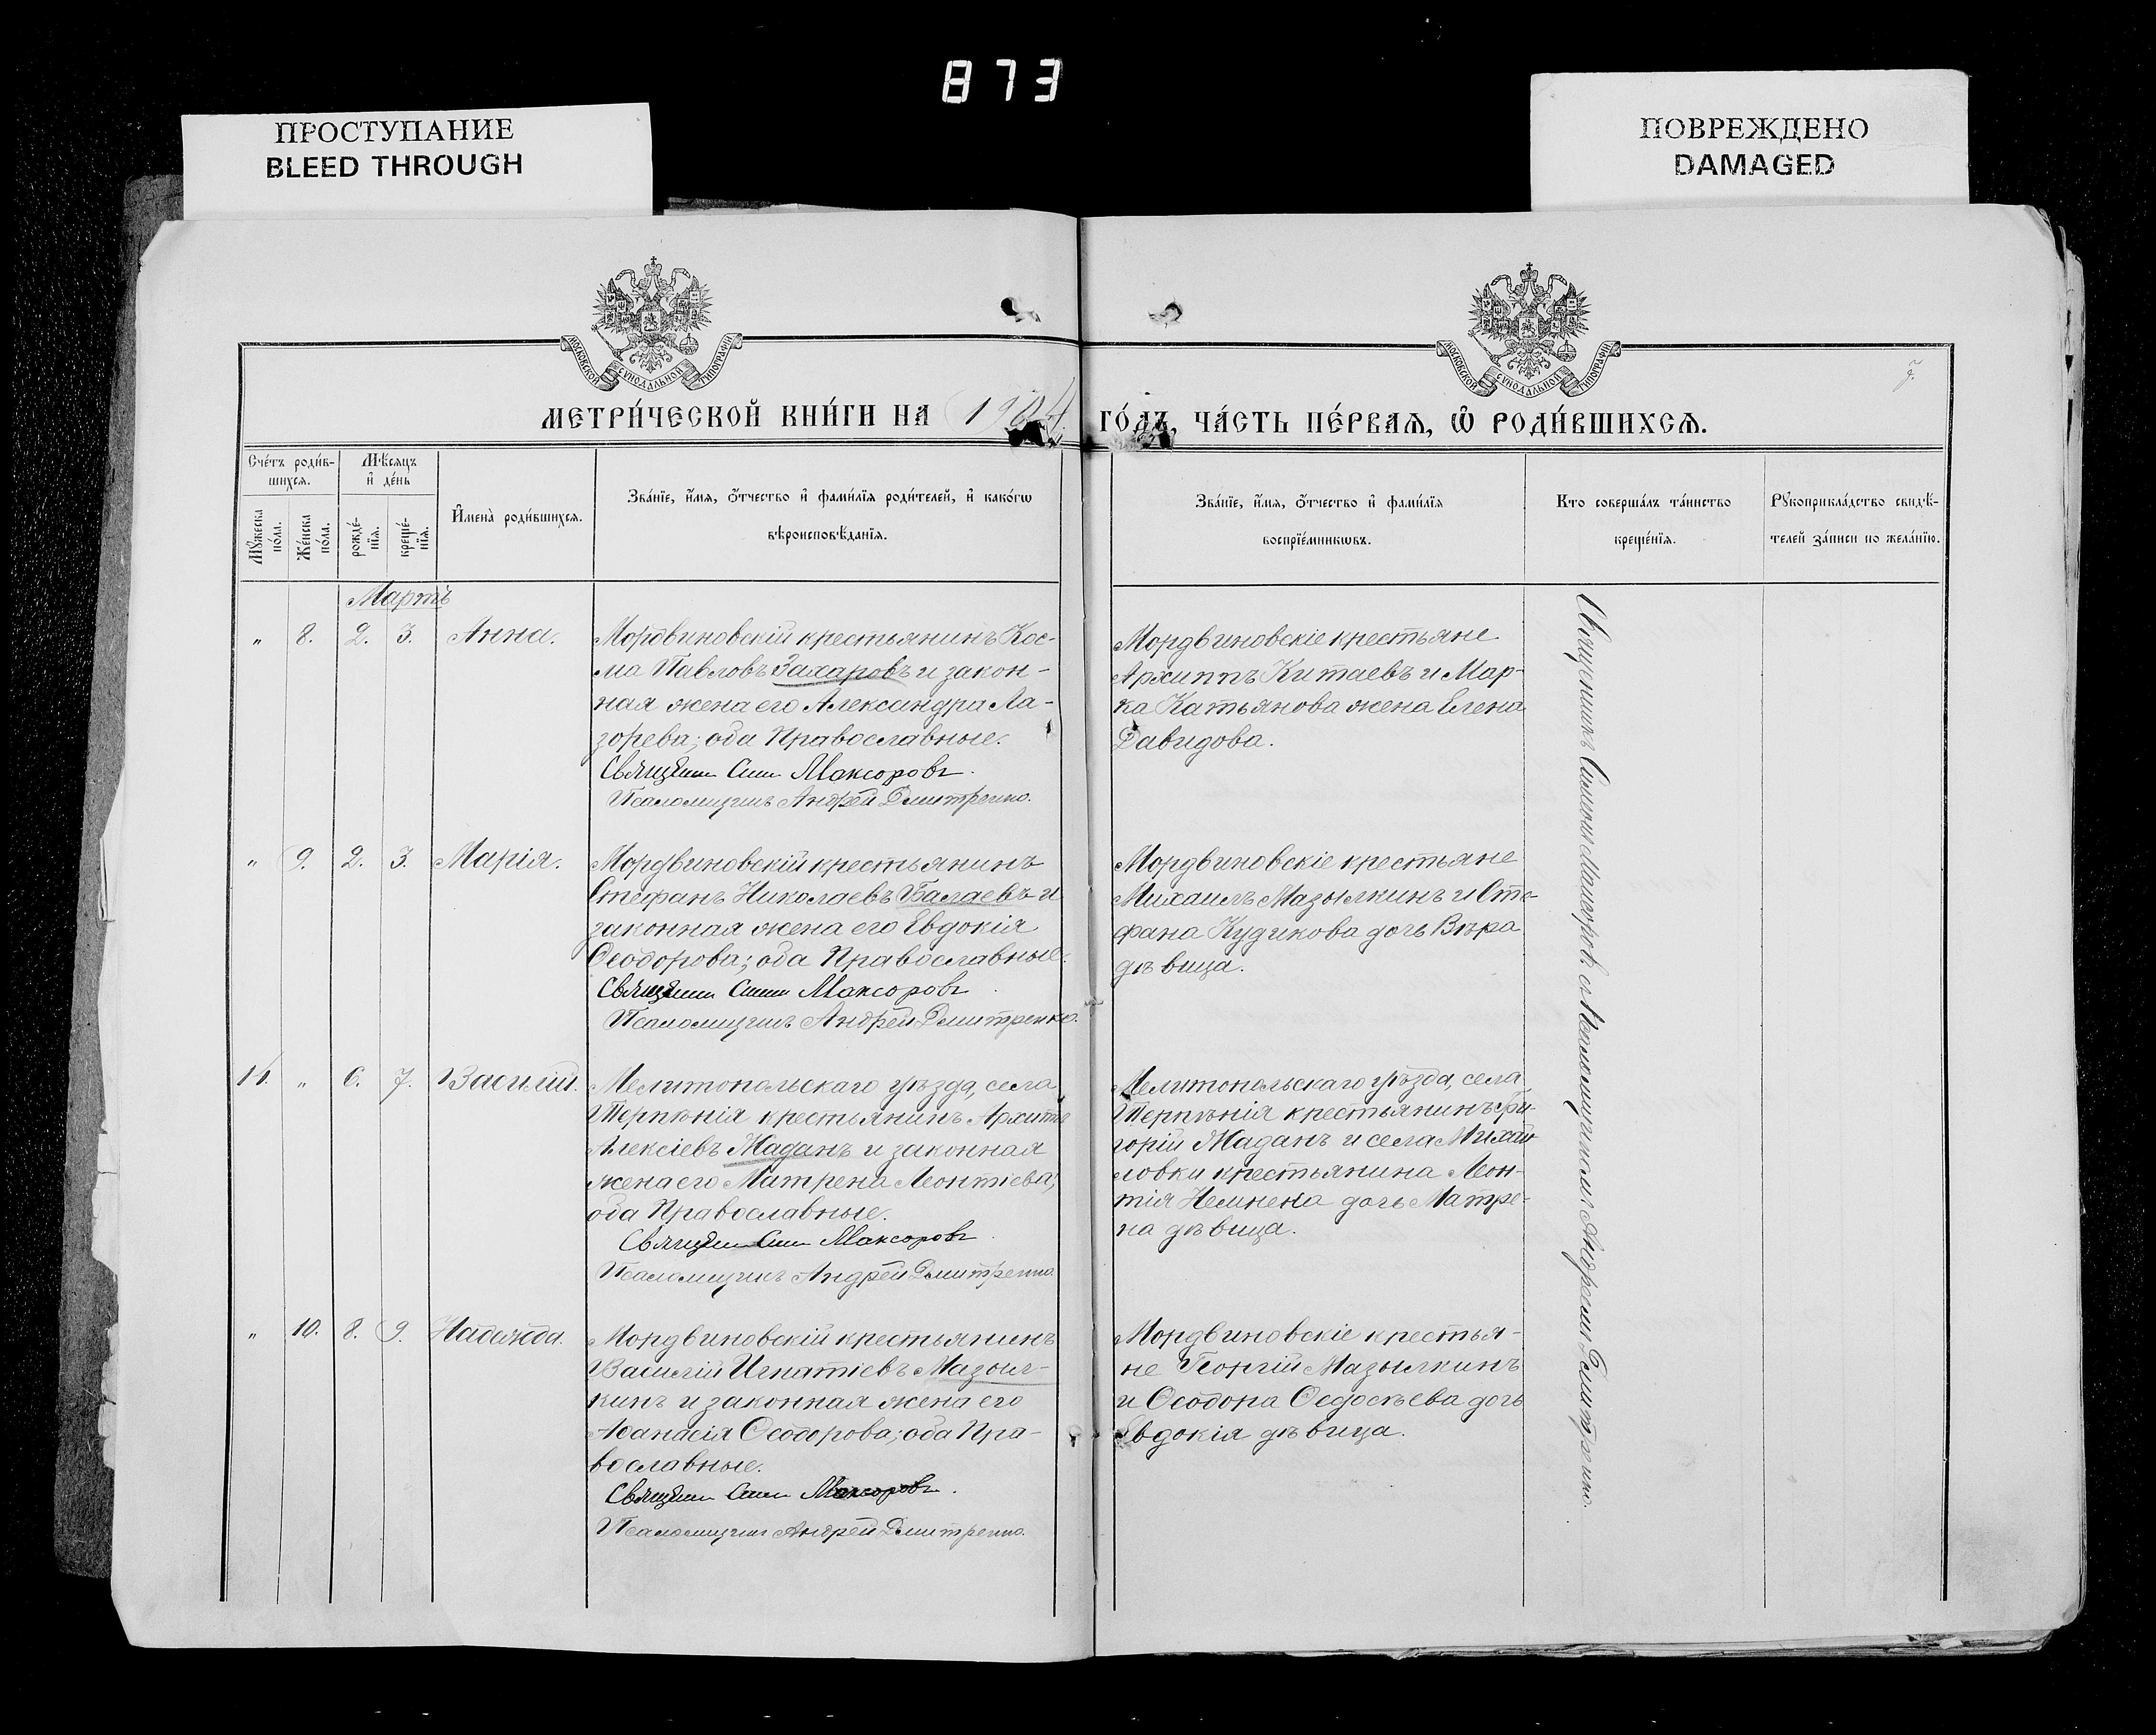 873
ПРОСТУПАНИЕ
BLEED THROUGH
ПОВРЕЖДЕНО
DAMAGED
МОСКОВСКОЙ СѴНОДАЛЬНОЙ ТИПОГРАФІИ
МОСКОВСКОЙ СѴНОДАЛЬНОЙ ТИПОГРАФІИ
МЕТРИ́ЧЕСКОЙ КНИ́ГИ НА 1904 ГО́ДЪ, ЧА́СТЬ ПЕ́РВАѦ, Ѽ РОДИ́ВШИХСѦ.
Сче́тъ роди́в-
шихсѧ.
Мꙋ́жеска по́ла.
Же́нска по́ла.
Мѣ́сѧцъ и҆ де́нь
рожде́-нїѧ.
креще́-нїѧ.
И҆мена̀ роди́вшихсѧ.
Зва́нїе, и҆́мѧ, ѻ҆́тчество и҆ фами́лїѧ роди́телей, и҆ како́гѡ
вѣроисповѣ́данїѧ.
Зва́нїе, и҆́мѧ, ѻ҆́тчество и҆ фами́лїѧ
воспрїе́мникѡвъ.
Кто соверша́лъ та́инство
креще́нїѧ.
Рꙋкоприкла́дство свидѣ́-
телей за́писи по жела́нїю.
Мартъ
" 8. 2. 3. Анна.
Мордвиновскій крестьянинъ Кос-
ма Павловъ Захаровъ и закон-
ная жена его Александра Ла-
зорева; оба Православные.
Священн Сим Максоровъ.
Псаломщикъ Андрей Дмитренко.
Мордвиновскіе крестьяне
Архиппъ Китаевъ и Мар-
ка Катьянова жена Елена
Давидова.
" 9. 2. 3. Марія.
Мордвиновскій крестьянинъ
Стефанъ Николаевъ Балаевъ и
законная жена его Евдокія
Ѳеодорова; оба Православные.
Священн Сим Максоровъ
Псаломщикъ Андрей Дмитренко.
Мордвиновскіе крестьяне
Михаилъ Мазылкинъ и Сте-
фана Кудикова дочь Вѣра
дѣвица.
11. " 6. 7. Василій.
Мелитопольскаго уѣзда, села
Терпѣнія крестьянинъ Архипъ
Алексіевъ Маданъ и законная
жена его Матрена Леонтіева;
оба Православные.
Священн Сим Максоровъ
Псаломщикъ Андрей Дмитренко.
Мелитопольскаго уѣзда, села
Терпѣнія крестьянинъ Гри-
горій Маданъ и села Михай-
ловки крестьянина Леон-
тія дочь Матре-
на дѣвица.
" 10. 8. 9. Надежда.
Мордвиновскій крестьянинъ
Василій Игнатіевъ Мазыл-
кинъ и законная жена его
Аѳанасія Ѳеодорова; оба Пра-
вославные.
Священн Сим Максоровъ.
Псаломщикъ Андрей Дмитренко.
Мордвиновскіе крестья-
не Георгій Мазылкинъ
и Ѳеодора Ѳедосѣева дочь
Евдокія дѣвица.
Священникъ Симеонъ Максоровъ съ Псаломщикомъ Андреемъ Дмитренко.